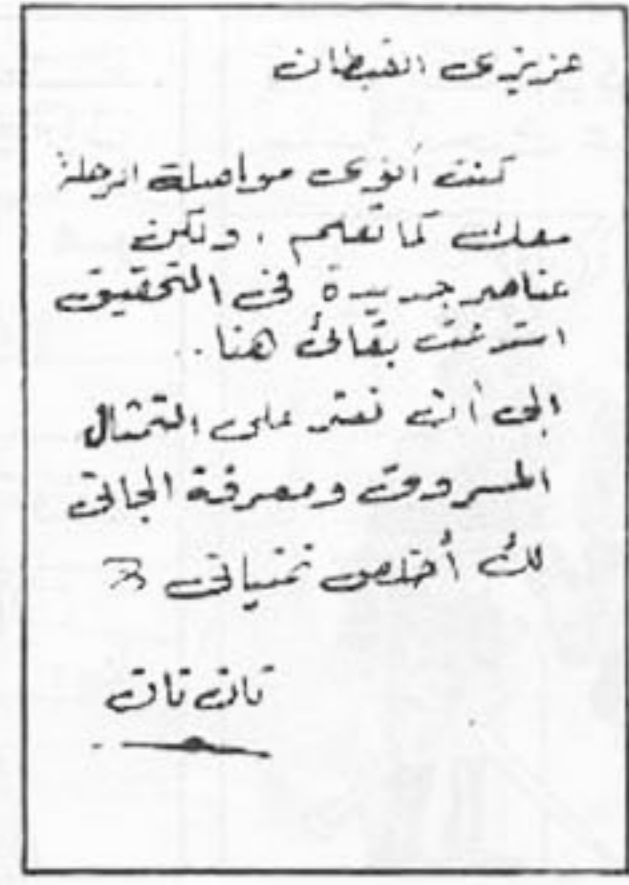 عزيزى القبطان
كنت أنوى مواصلة الرحلة
معك كما تعلم ، ولكن
عناصر جديدة فى التحقيق
استدعت بقائى هنا ..
إلى أن نعثر على التمثال
المسروق ومعرفة الجانى
لك أخلص تمنياتى
تان تان